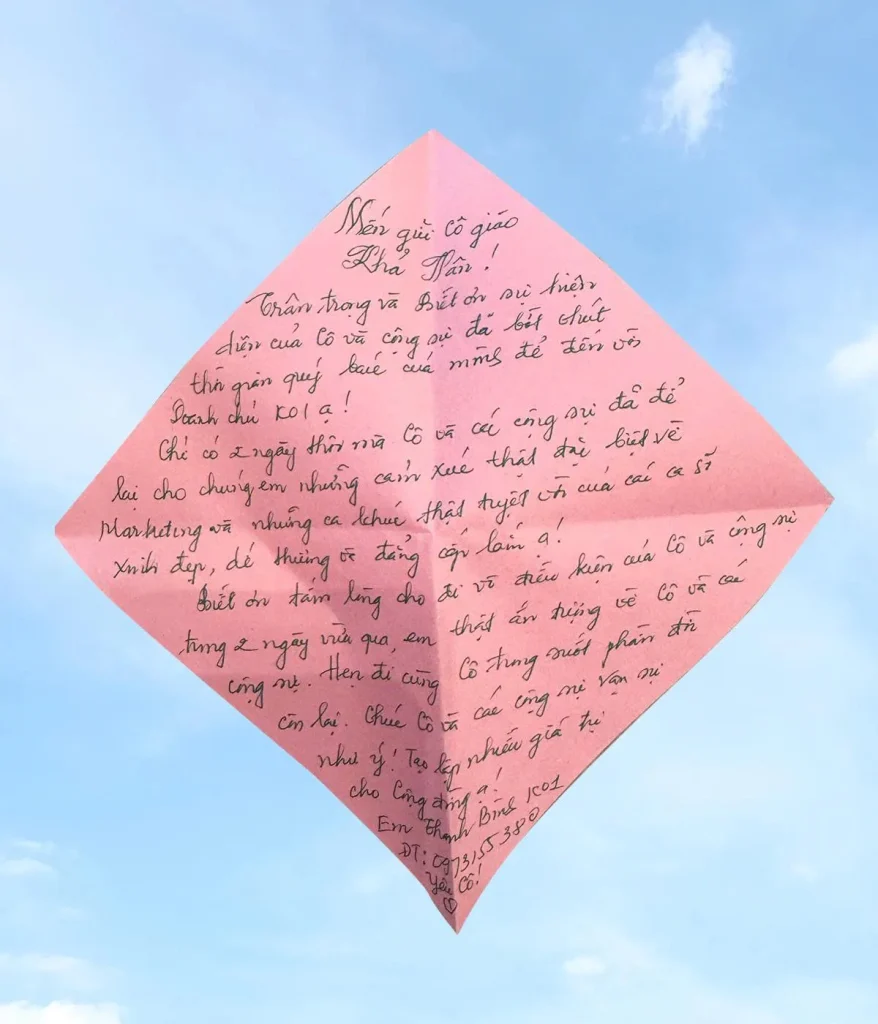 Mến gửi Cô giáo
Khả Hân!
Trân trọng và Biết ơn sự hiện
diện của Cô và cộng sự đã bớt chút
thời gian quý báu của mình để đến với
Doanh chủ K01 ạ!
Chỉ có 2 ngày thôi mà Cô và các cộng sự đã để
lại cho chúng em những cảm xúc thật đặc biệt về
Marketing và những ca khúc thật tuyệt vời của các ca sĩ
xinh đẹp, dễ thương và đẳng cấp lắm ạ!
Biết ơn tấm lòng cho đi vô điều kiện của Cô và cộng sự
trong 2 ngày vừa qua, em thật ấn tượng về Cô và các
cộng sự. Hẹn đi cùng Cô trong suốt phần đời
còn lại. Chúc Cô và các cộng sự vạn sự
như ý! Tạo lập nhiều giá trị
cho Cộng đồng ạ!
Em Thanh Bình K01
ĐT: 0973155380
Yêu Cô!